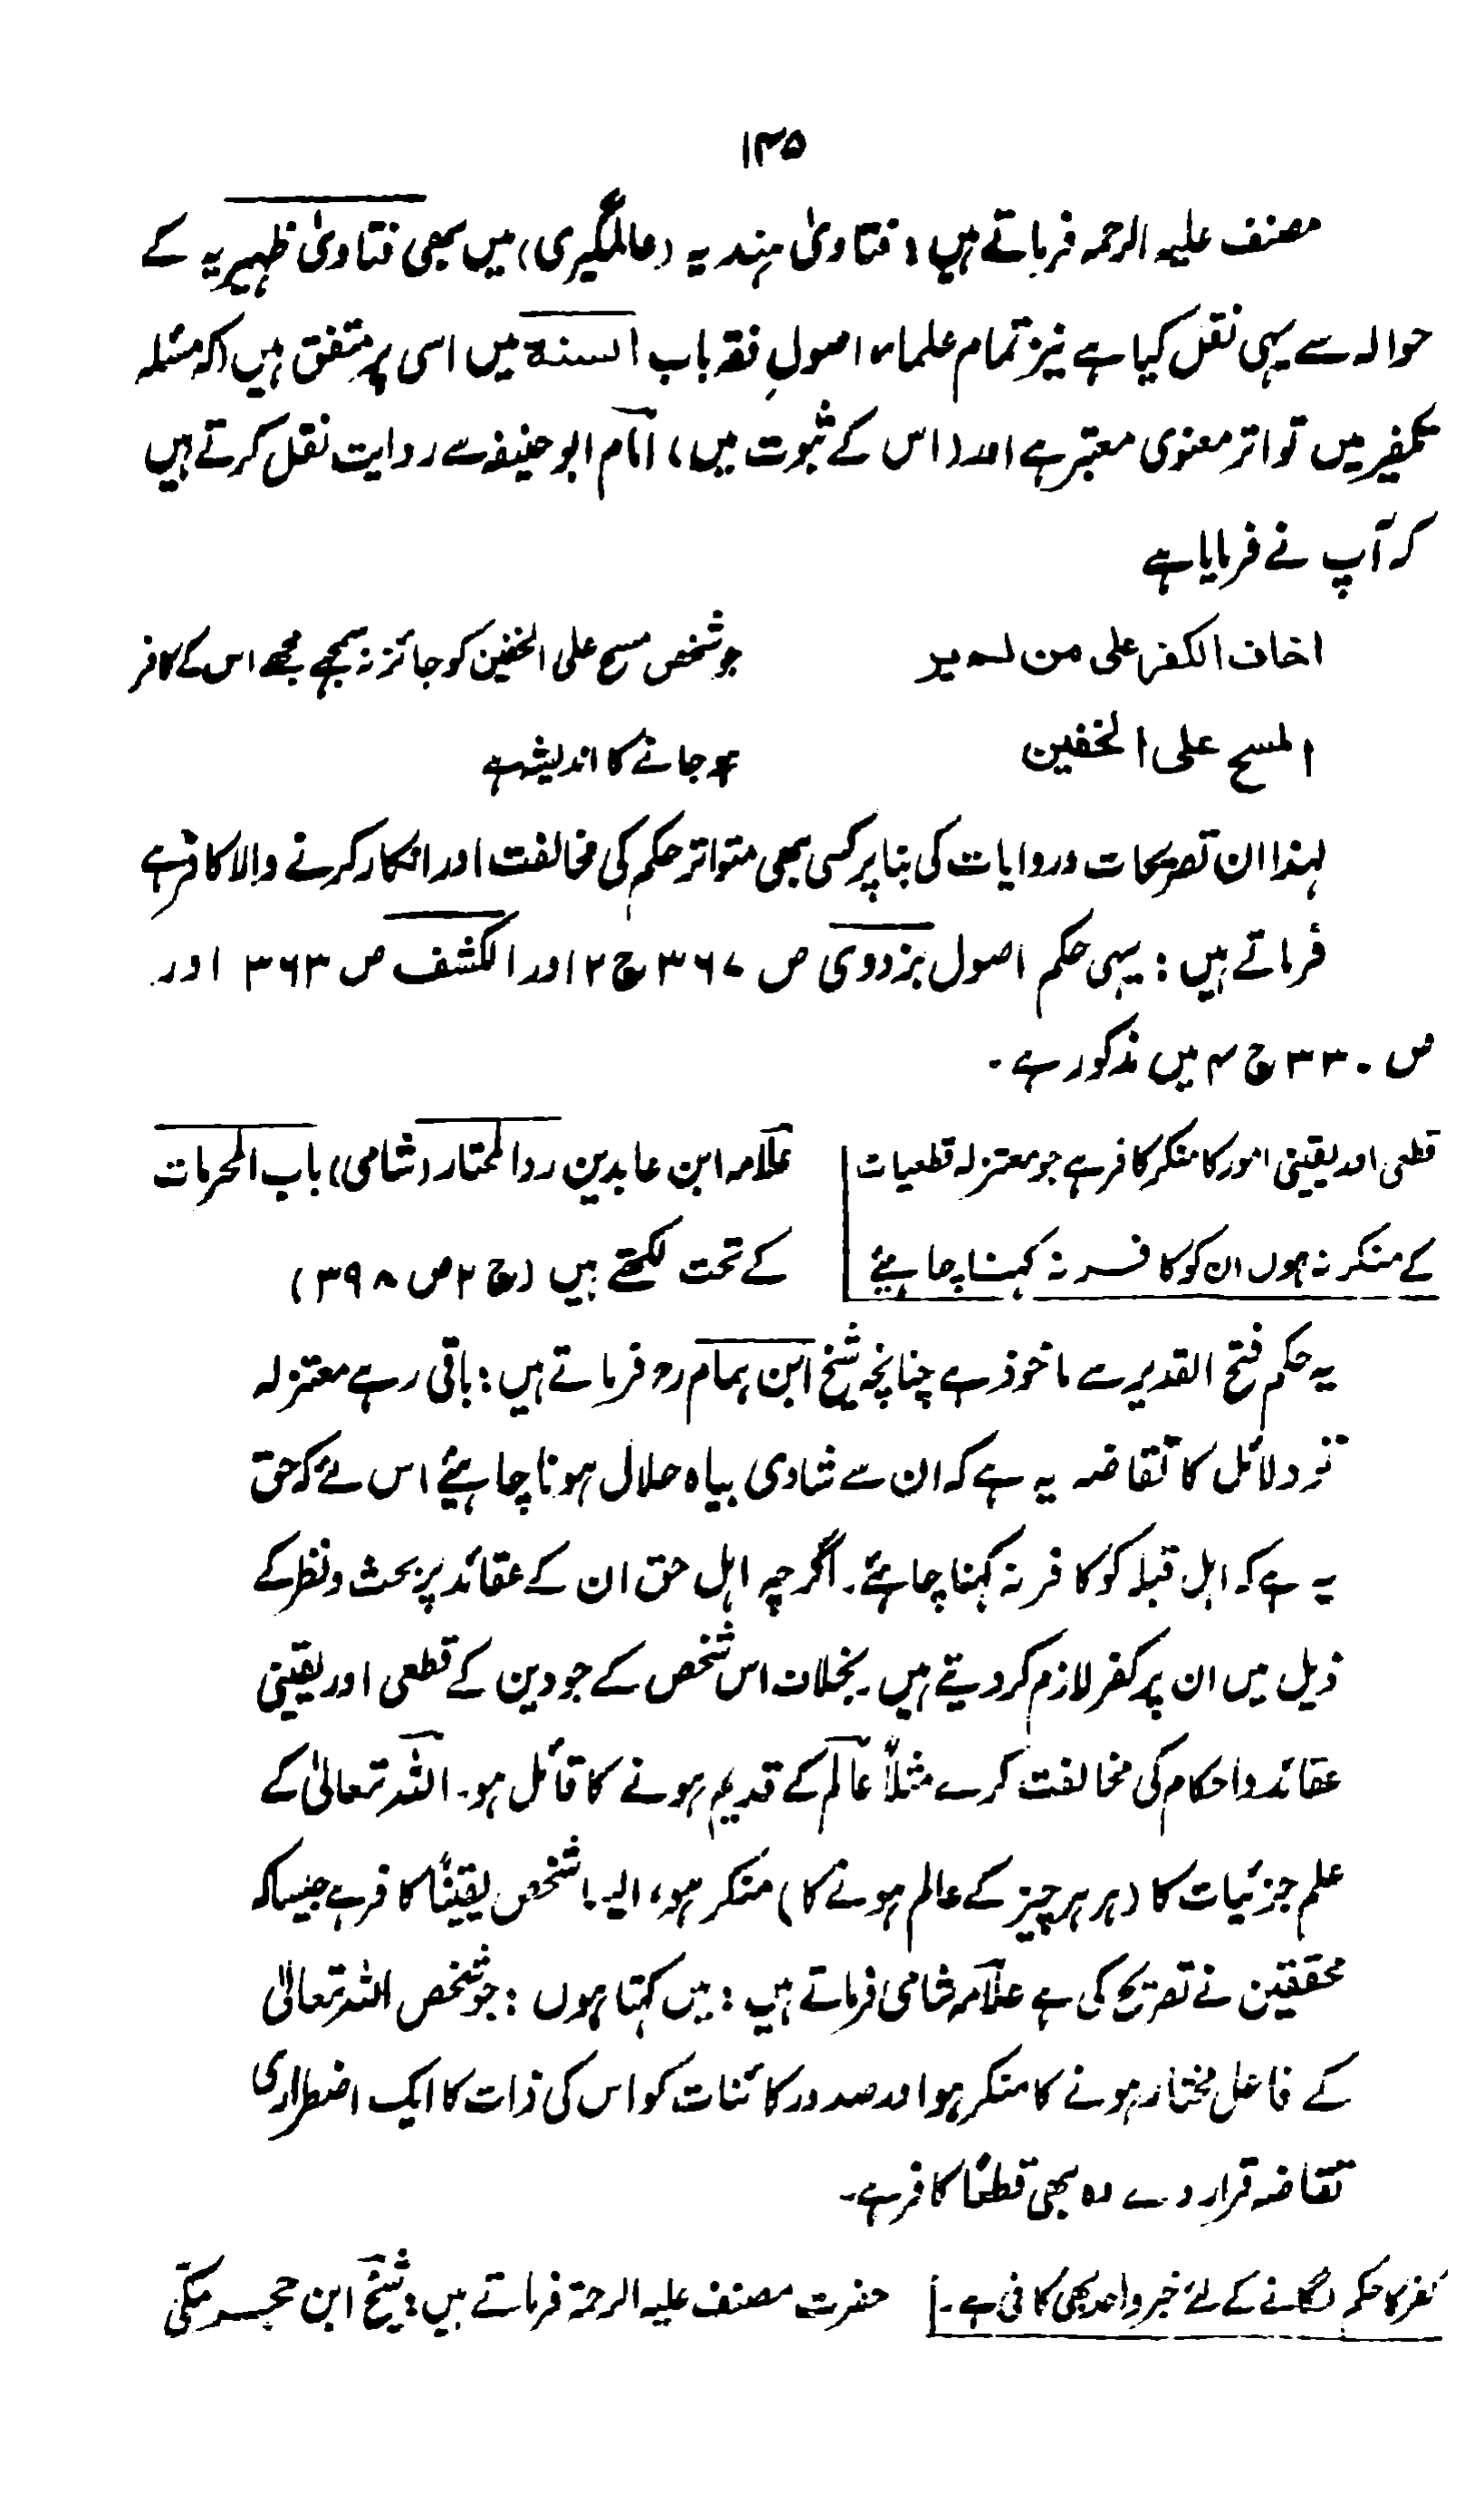 ۱۴۵
مصنف علیہ الرحمہ فرماتے ہیں: فتاویٰ ہندیہ (عالمگیری) میں بھی فتاویٰ ظہیریہ کے
حوالہ سے یہی نقل کیا ہے نیز تمام علماء اصولِ فقہ باب السنة میں اسی پر متفق ہیں (کہ مسئلہ
تکفیر میں تواتر معنوی معتبر ہے اور (اس کے ثبوت میں) امام ابو حنیفہ سے روایت نقل کرتے ہیں
کہ آپ نے فرمایا ہے
اخاف الكفر على من لم ير
جو شخص مسح علی الخفین کو جائز نہ سمجھے مجھے اس کے کافر
المسح على الخفين
ہو جانے کا اندیشہ ہے
لہٰذا ان تصریحات و روایات کی بنا پر کسی بھی متواتر حکم کی مخالفت اور انکار کرنے والا کافر ہے
فرماتے ہیں: یہی حکم اصول بزدوی ص ۳۶۷ ج ۲ اور الکشف ص ۳۶۳ اور
ص ۳۳۰ ج ۴ میں مذکور ہے۔
قطعی اور یقینی امور کا منکر کافر ہے جو معتزلہ قطعیات
کے منکر نہ ہوں ان کو کافر نہ کہنا چاہیئے
علامہ ابن عابدین رد المحتار (شامی) باب المحرمات
کے تحت لکھتے ہیں (ج ۲ ص ۳۹۸)
یہ حکم فتح القدیر سے ماخوذ ہے چنانچہ شیخ ابن ہمام رہ فرماتے ہیں: باقی رہے معتزلہ
تو دلائل کا تقاضہ یہ ہے کہ ان سے شادی بیاہ حلال ہونا چاہیئے اس لئے کہ حق
یہ ہے کہ اہل قبلہ کو کافر نہ کہنا چاہئے۔ اگرچہ اہل حق ان کے عقائد پر بحث و نظر کے
ذیل میں ان پر کفر لازم کر دیتے ہیں بخلاف اس شخص کے جو دین کے قطعی اور یقینی
عقائد و احکام کی مخالفت کرے مثلاً عالم کے قدیم ہونے کا قائل ہو۔ اللہ تعالیٰ کے
علم جزئیات کا (ہر ہر چیز کے عالم ہونے کا) منکر ہو، ایسا شخص یقیناً کافر ہے جیسا کہ
محققین نے تصریح کی ہے علامہ شامی فرماتے ہیں: میں کہتا ہوں: جو شخص اللہ تعالیٰ
کے فاعل مختار ہونے کا منکر ہو اور صدور کائنات کو اس کی ذات کا ایک اضطراری
تقاضہ قرار دے وہ بھی قطعًا کافر ہے۔
کفر کا حکم لگانے کے لئے خبر واحد بھی کافی ہے۔
حضرت مصنف علیہ الرحمۃ فرماتے ہیں: شیخ ابن حجر مکی